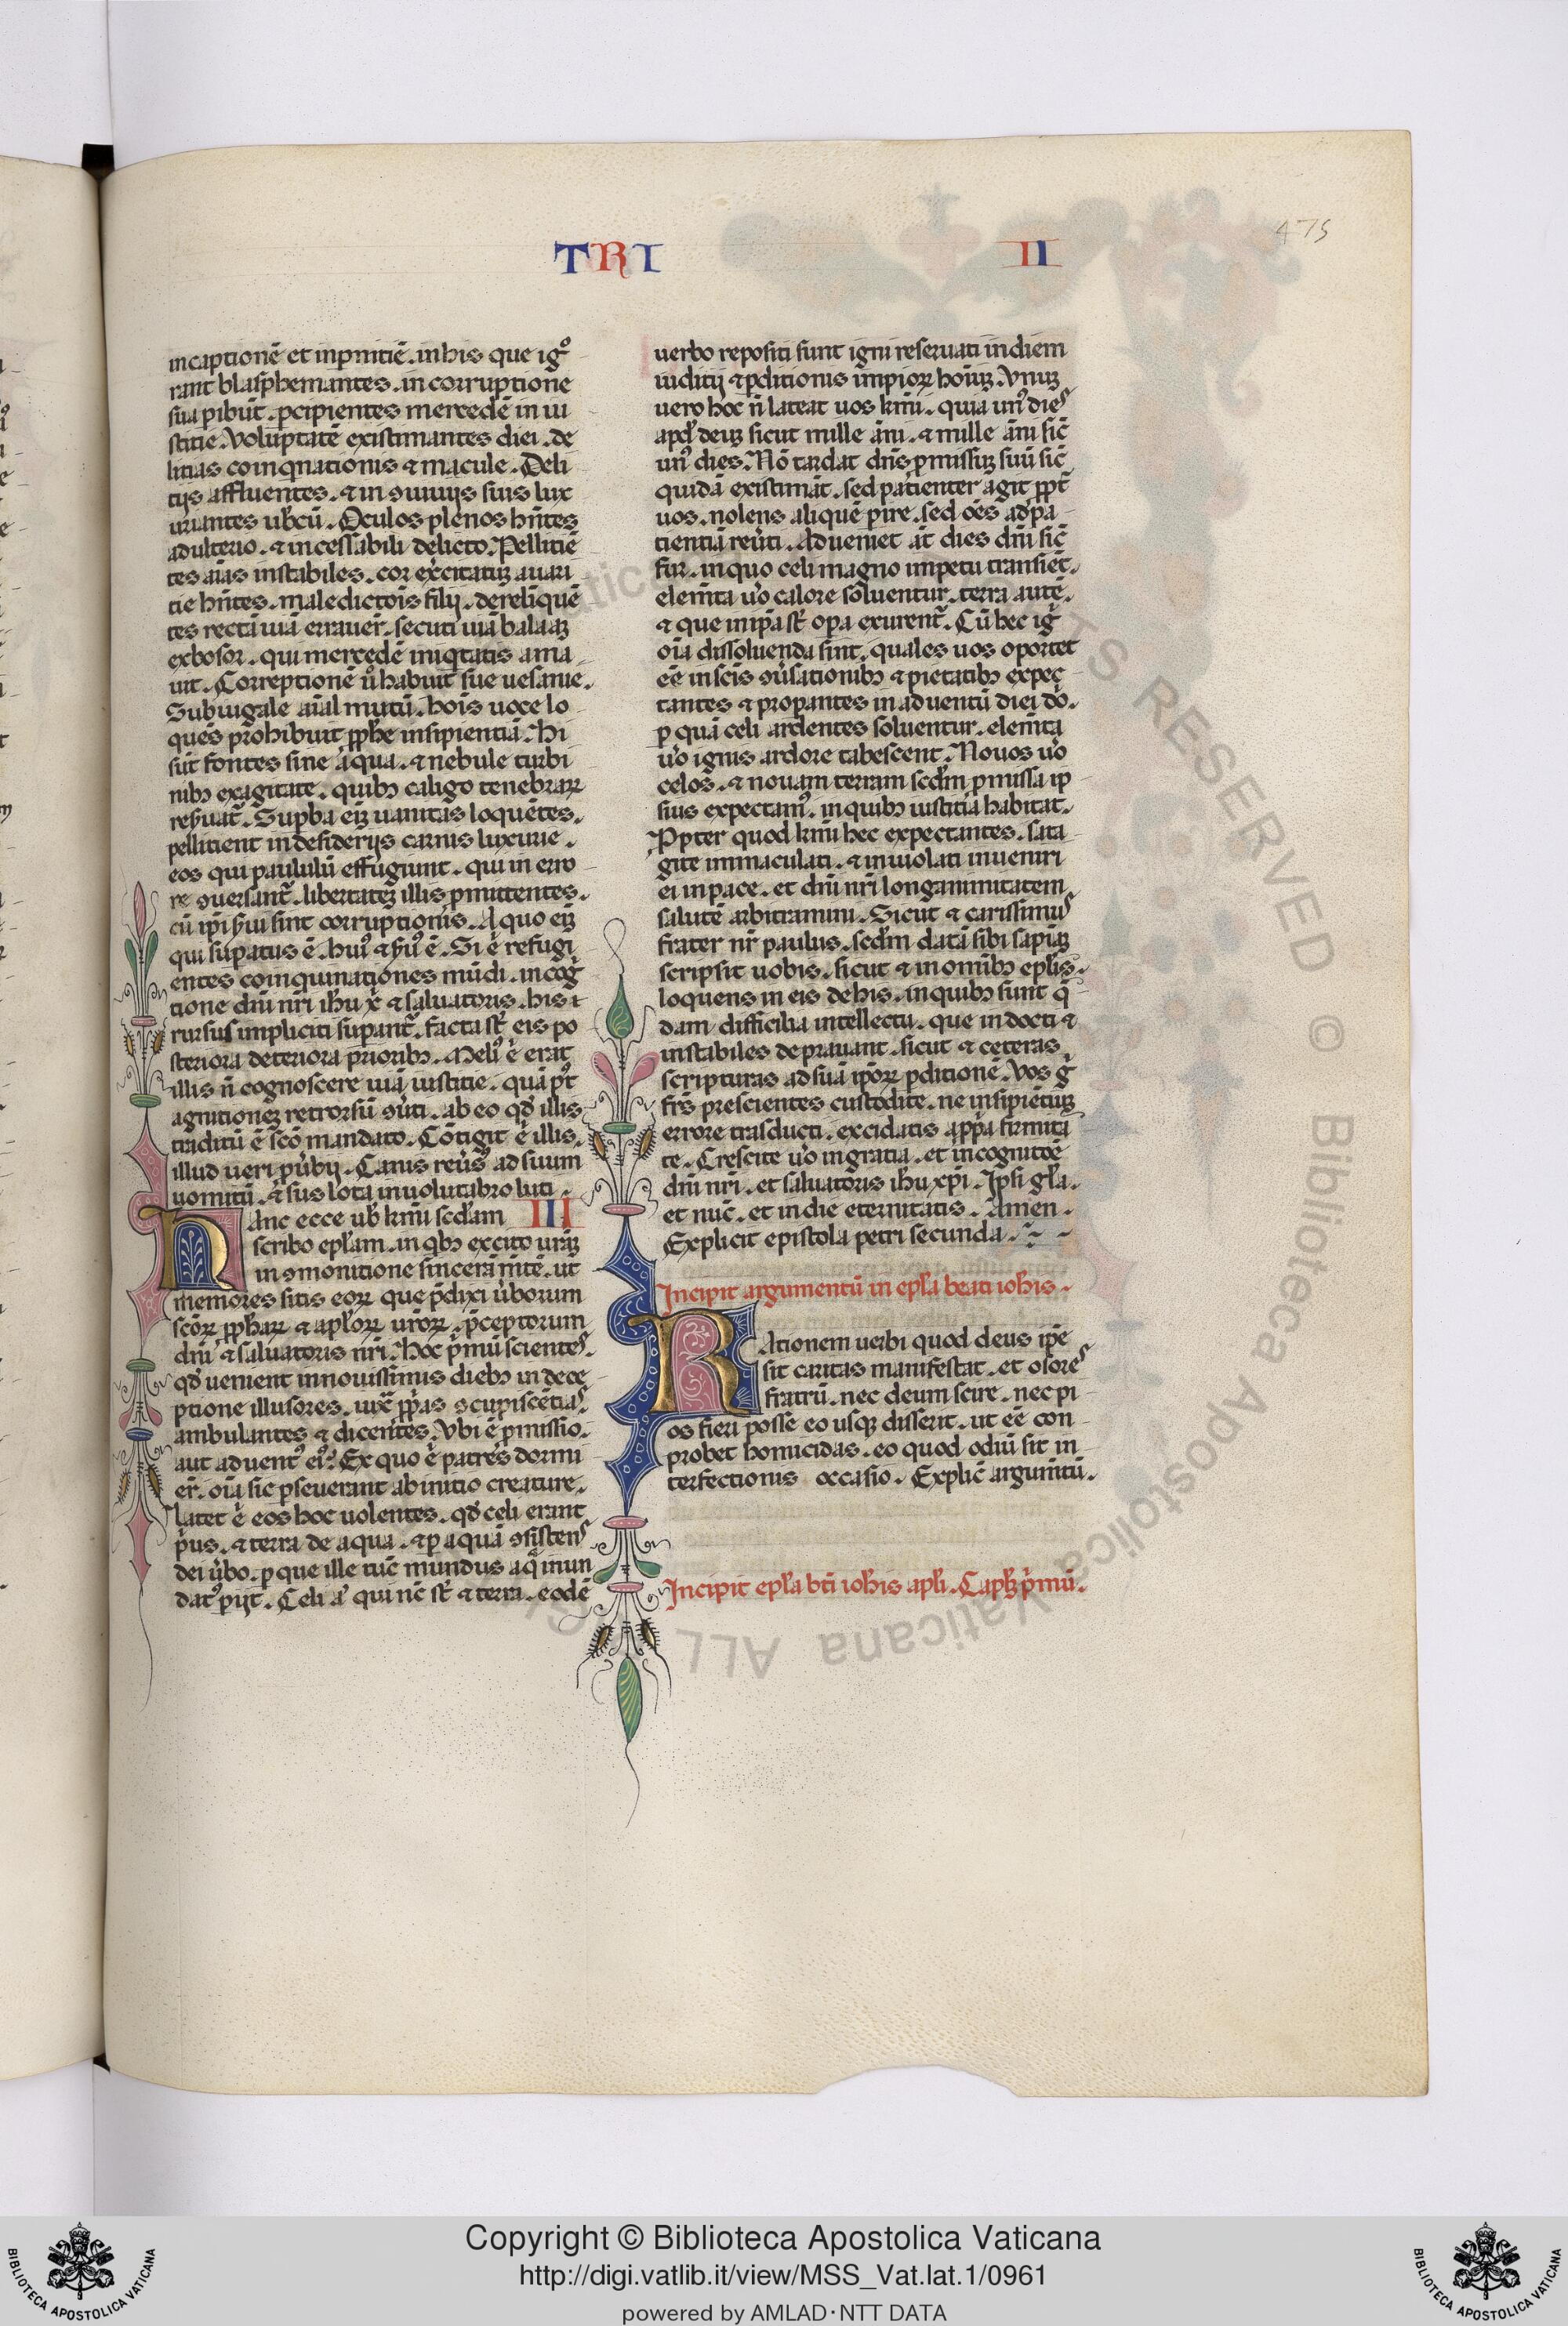 TRI
II
475
in captionē et inpnitiē. in his que igᵒ
rant blasphemantes. in corruptione
sua pibūt. pcipientes mercedē in iu
stitie. Voluptatē existimantes diei. de
litias coinqnationis ⁊ macule. Deli
tijs affluentes. ⁊ in ꝯuiuijs suis lux
uriantes ub̕cū. Oculos plenos hn̄tes
adulterio. ⁊ incessabili delicto. Pelliciē
tes aīas instabiles. cor exc̕citatuꝫ auari
tie hn̄tes. maledictōis filij. derelīquē
tes rectā uiā errauer̄. secuti uiā balaaꝫ
ex bosor. qui mercedē iniqtatis ama
uit. Correptionē u̕o habuit sue uesanie.
Subiugale aīal mutū. hoīs uoce lo
ques prohibuit ꝓphe insipientiā. Hi
sūt fontes sine aqua. ⁊ nebule turbi
nibꝫ exagitate. quibꝫ caligo tenebraꝝ
res̕uat̄. Supba eīꝫ uanitas loquētes.
pellicient in desiderijs carnis luxurie.
eos qui paululū effugiunt. qui in erro
re ꝯuersant̄. libertateꝫ illis ꝓmittentes.
cū ip̄i s̕ui sint corruptionis. A quo eīꝫ
qui supatus ē. huiꝰ ⁊ s̕uꝰ ē. Si ē refugi
entes coinquinationes mūdi. in cog̕
tione dn̄i nr̄i ih̄u x̄ ⁊ saluatoris. his ī
rursus impliciti supant̄. facta sт̄ eis po
steriora deteriora prioribꝫ. Meliꝰ ē erat
illis n̄ cognoscere uiā iustitie. quā pt̕
agnitioneꝫ retrorsū ꝯu̕ti. ab eo qd̕ illis
traditū ē scō mandato. Cōtigit ē illis.
illud ueri pu̕bij. Canis reu̕sꝰ ad suum
uomitū. ⁊ sus lota in uolutabro luti.
III
Hanc ecce ub̕ kmī scd̕am
scribo epl̕am. in qbꝫ excito ur̄aꝫ
in ꝯmonitione sincerā mn̄tē. ut
memores sitis eoꝝ que p̄dixi u̕borum
scōꝝ ꝓphaꝝ ⁊ apl̕oꝝ ur̄oꝝ. p̄ceptorum
dn̄i ⁊ saluatoris nr̄i. Hoc p̕mū scientes.
qd̕ uenient in nouissimis diebꝫ in dece
ptione illusores. iux̄ ꝓpas ꝯcupiscētias
ambulantes ⁊ dicentes. Vbi ē ꝓmissio.
aut aduentꝰ eiꝰ. Ex quo ē patres dormi
er̄. oīa sic pseuerant ab initio creature.
Latet ē eos hoc uolentes. qd̕ celi erant
p̕us. ⁊ terra de aqua. ⁊ p aquā ꝯsistens
dei u̕bo. p que ille tuc̄ mundus aq̄ inun
datꝰ pijt. Celi aꝰ qui nc̄ sт̄ ⁊ terra. eodē
uerbo repositi sunt igni reseruati in diem
iuditij ⁊ pditionis impioꝝ hoīuꝫ. Vnuꝫ
uero hoc n̄ lateat uos kmī. quia unꝰ dies
apd̕ deuꝫ sicut mille āni. ⁊ mille āni sic̄
unꝰ dies. Nō tardat dn̄s ꝓmissuꝫ suū sic̄
quidā existimāt. sed patienter agit ꝓpt̄
uos. nolens aliquē pire. sed oēs ad pe
nitentiā reu̕ti. Adueniet āt dies dn̄i sic̄
fur. in quo celi magno impetu transiēt.
elemn̄ta u̕o calore soluentur. terra autē.
⁊ que in ipa sт̄ opa exurent̄. Cū hec ig̕
oīa dissoluenda sint. quales uos oportet
eē in scīs ꝯu̕sationibꝫ ⁊ pietatibꝫ expec
tantes ⁊ propantes in aduentū diei dō.
p quā celi ardentes soluentur. elemn̄ta
u̕o ignis ardore tabescent. Nouos u̕o
celos. ⁊ nouam terram scd̕m ꝓmissa ip
sius expectamꝰ. in quibꝫ iustitia habitat.
Ppter quod kmī hec expectantes. sata
gite immaculati. ⁊ inuiolati inueniri
ei in pace. et dn̄i nr̄i longanimitatem
salutē arbitramini. Sicut ⁊ carissimus
frater nr̄ paulus. scd̕m datā sibi sapīaꝫ
scripsit uobis. sicut ⁊ in omībꝫ epl̕is.
loquens in eis de his. in quibꝫ sunt q̄
dam difficilia intellectu. que indocti ⁊
instabiles deprauant. sicut ⁊ ceteras
scripturas ad suā ipōꝝ pditionē. Vos g̕
fr̄s prescientes custodite. ne insipiētiuꝫ
errore trasducti. excidatis a ppa firmita
te. Crescite u̕o in gratia. et in cognitōe
dn̄i nr̄i. et saluatoris ih̄u xp̄i. Ipsi gl̕a.
et nūc. et in die eternitatis. Amen.
Explicit epistola petri secunda.
Incipit argumentū in epl̕a beati ioh̄is.
Rationem uerbi quod deus ipē
sit caritas manifestat. et osores
fratrū. nec deum scire. nec pi
os fieri posse eo usqꝫ disserit. ut eē con
probet homicidas. eo quod odiū sit in
terfectionis occasio. Explic̄ argumn̄tū.
Incipit epl̕a bt̄i ioh̄is apl̕i. Capꝉꝫ p̕mū.
Copyright © Biblioteca Apostolica Vaticana
http://digi.vatlib.it/view/MSS_Vat.lat.1/0961
powered by AMLAD·NTT DATA
BIBLIOTECA APOSTOLICA VATICANA
BIBLIOTECA APOSTOLICA VATICANA